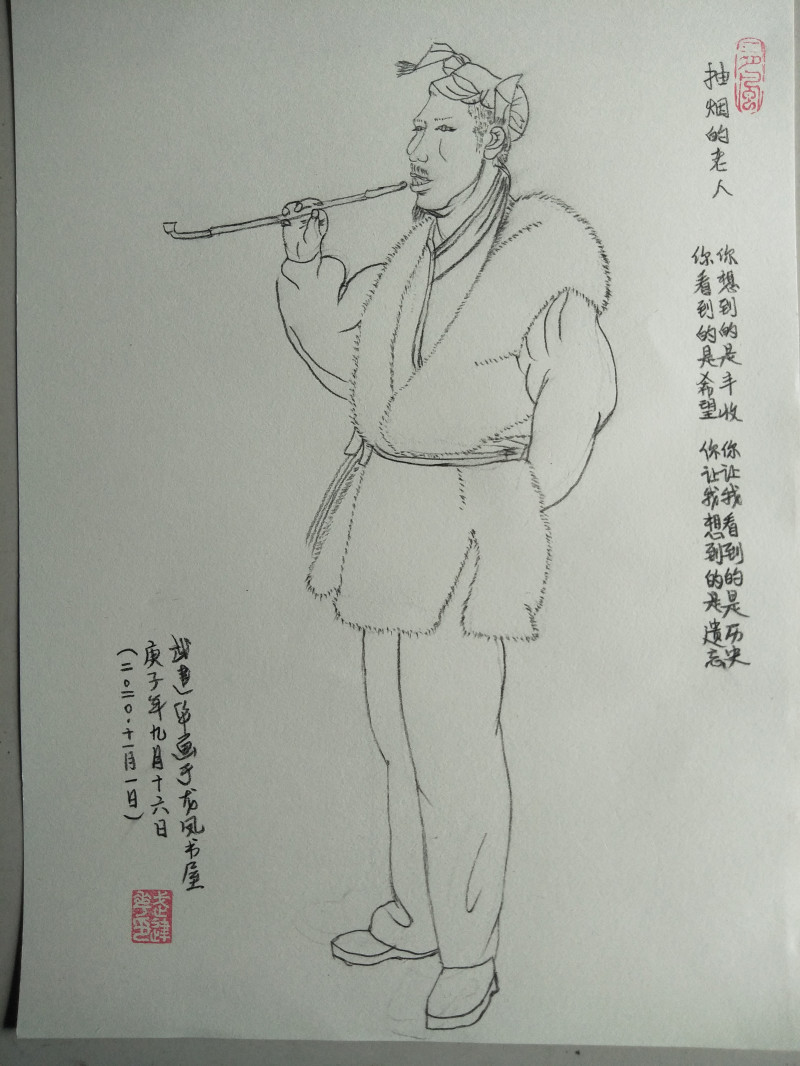 抽烟的老人
你想到的是丰收
你看到的是希望
你让我看到的是历史
你让我想到的是遗忘
建华画于龙凤书屋
庚子年九月十六日
（二〇二〇.十一月一日）